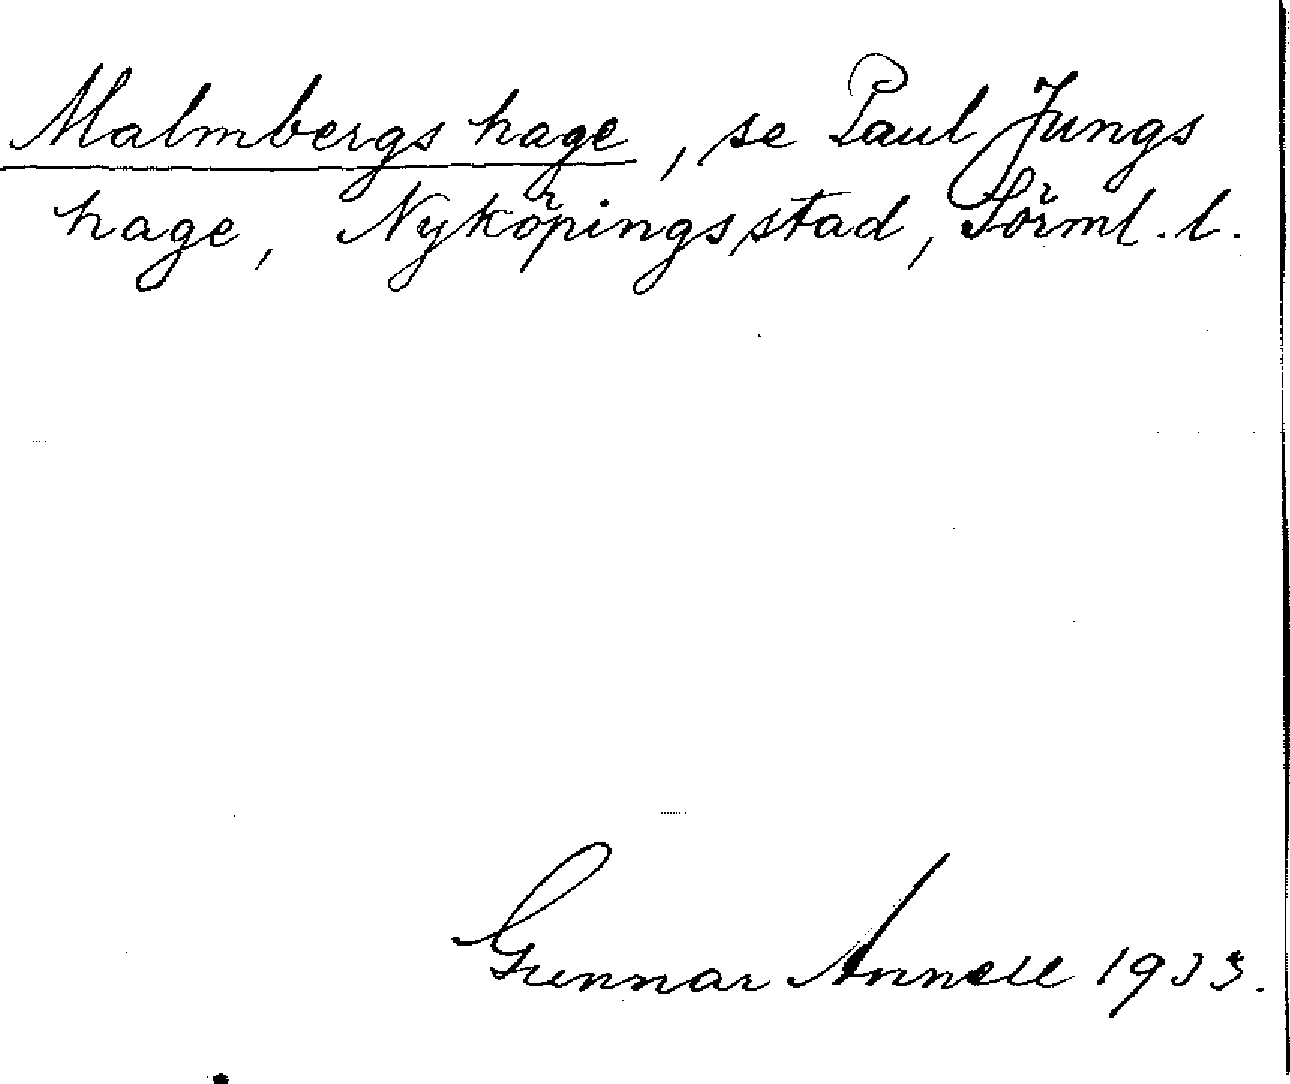 Malmbergs hage, se Paul Jungs
hage, Nyköpings stad, Sörml. l.
Gunnar Annell 1933.